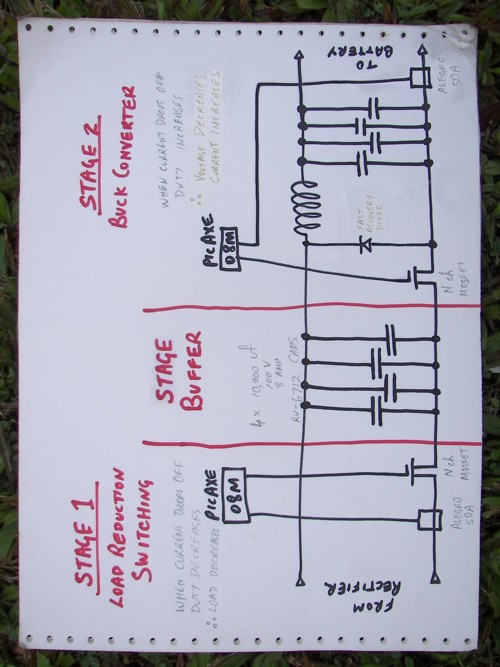 STAGE 1
LOAD REDUCTION
SWITCHING
WHEN CURRENT DROPS OFF
DUTY DECREASES
∴ LOAD DECREASE
PICAXE
08M
FROM
RECTIFIER
ALEGRO
50A
N ch
MOSFET
STAGE
BUFFER
4x 10,000 uf
100V
8 AMP
RU-6712 CAPS
STAGE 2
BUCK CONVERTER
WHEN CURRENT DROPS OFF
DUTY INCREASES
∴ VOLTAGE DECREASES
CURRENT INCREASES
PICAXE
08M
FAST
RECOVERY
DIODE
N ch
MOSFET
TO
BATTERY
ALEGRO
50A